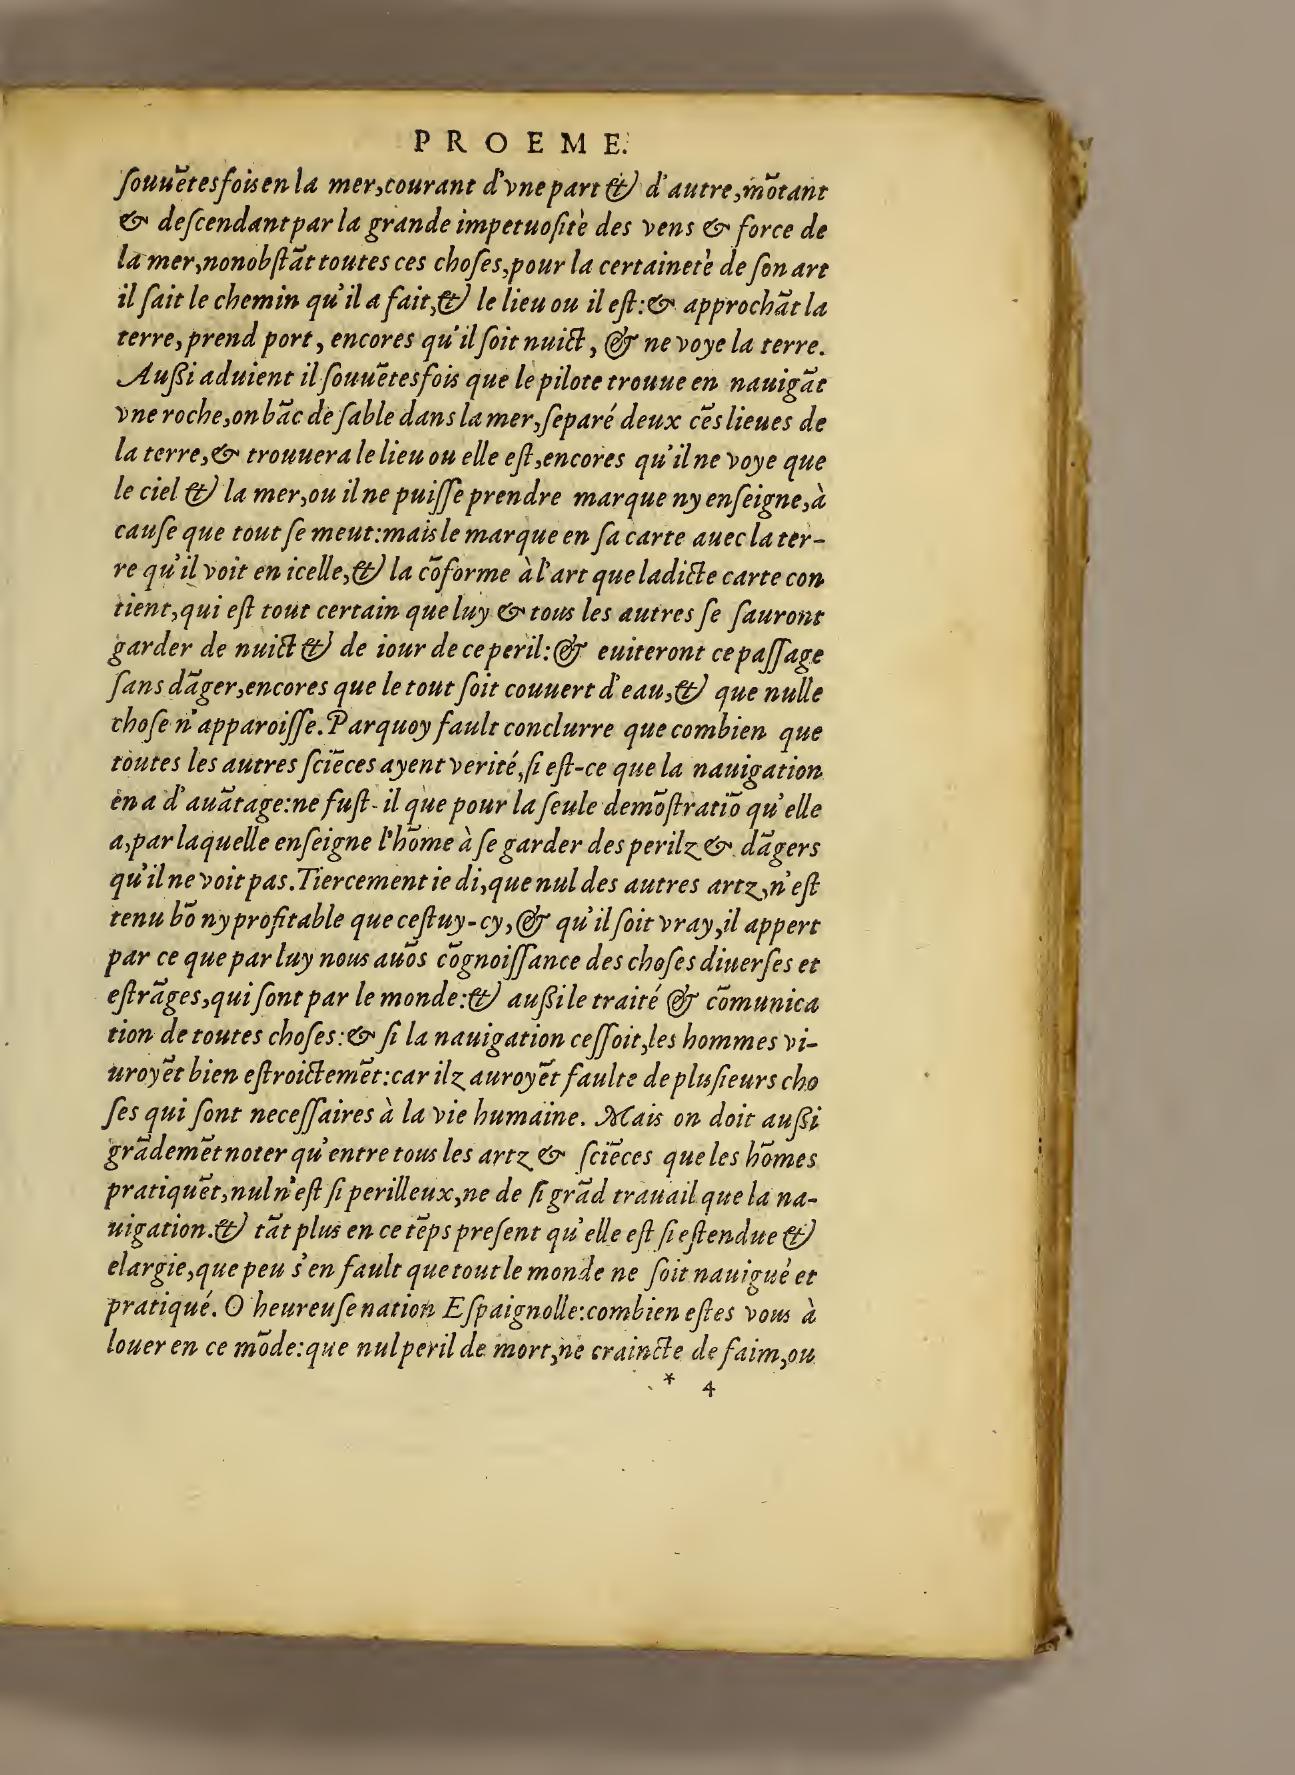 PROEME.
ſouuẽtesfois en la mer, courant d'vne part & d'autre, mõtant
& deſcendant par la grande impetuoſitè des vens & force de
la mer, nonobſtãt toutes ces choſes, pour la certainetè de ſon art
il ſait le chemin qu'il a fait, & le lieu ou il eſt: & approchãt la
terre, prend port, encores qu'il ſoit nuict, & ne voye la terre.
Auſſi aduient il ſouuẽtesfois que le pilote trouue en nauigãt
vne roche, on bãc de ſable dans la mer, ſeparé deux cẽs lieues de
la terre, & trouuera le lieu ou elle eſt, encores qu'il ne voye que
le ciel & la mer, ou il ne puiſſe prendre marque ny enſeigne, à
cauſe que tout ſe meut: mais le marque en ſa carte auec la ter-
re qu'il voit en icelle, & la cõforme à l'art que ladicte carte con
tient, qui eſt tout certain que luy & tous les autres ſe ſauront
garder de nuict & de iour de ce peril: & euiteront ce paſſage
ſans dãger, encores que le tout ſoit couuert d'eau, & que nulle
choſe n'apparoiſſe. Parquoy fault conclurre que combien que
toutes les autres ſciẽces ayent verité, ſi eſt-ce que la nauigation
en a d'auãtage: ne fuſt-il que pour la ſeule demõſtratiõ qu'elle
a, par laquelle enſeigne l'hõme à ſe garder des perilz & dãgers
qu'il ne voit pas. Tiercement ie di, que nul des autres artz, n'eſt
tenu bõ ny profitable que ceſtuy-cy, & qu'il ſoit vray, il appert
par ce que par luy nous auõs cõgnoiſſance des choſes diuerſes et
eſtrãges, qui ſont par le monde: & auſſi le traité & cõmunica
tion de toutes choſes: & ſi la nauigation ceſſoit, les hommes vi-
uroyẽt bien eſtroictemẽt: car ilz auroyẽt faulte de pluſieurs cho
ſes qui ſont neceſſaires à la vie humaine. Mais on doit auſſi
grãdemẽt noter qu'entre tous les artz & ſciẽces que les hõmes
pratiquẽt, nul n'eſt ſi perilleux, ne de ſi grãd trauail que la na-
uigation. & tãt plus en ce tẽps preſent qu'elle eſt ſi eſtendue &
elargie, que peu s'en fault que tout le monde ne ſoit nauigué et
pratiqué. O heureuſe nation Eſpaignolle: combien eſtes vous à
louer en ce mõde: que nul peril de mort, ne craincte de faim, ou
* 4